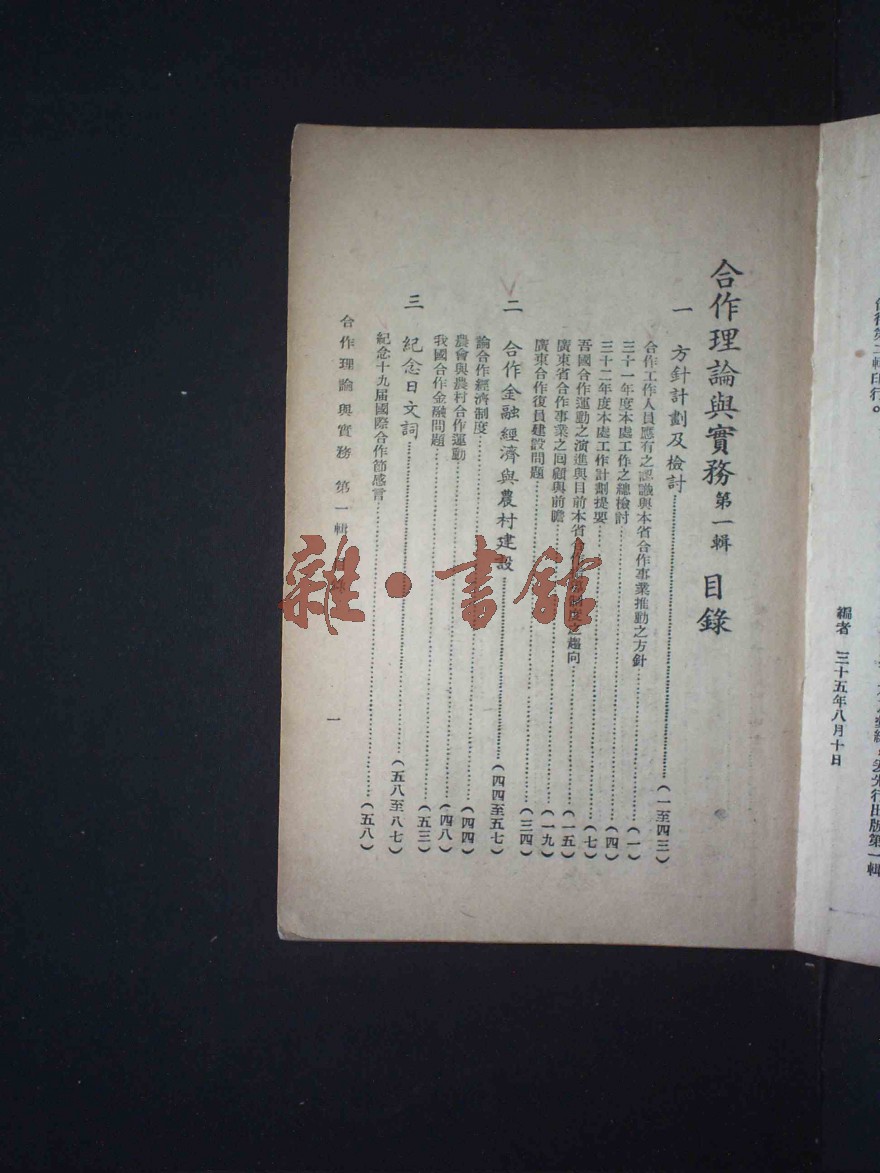 合作理論與實務 第一輯 目錄
一 方針計劃及檢討……(一至四三)
合作工作人員應有之認識與本省合作事業推動之方針……(一)
三十一年度本處工作之總檢討……(四)
三十二年度本處工作計劃提要……(七)
吾國合作運動之演進與目前本省合作制度之趨向……(一五)
廣東省合作事業之回顧與前瞻……(一九)
廣東合作復員建設問題……(三四)
二 合作金融經濟與農村建設……(四四至五七)
論合作經濟制度……(四四)
農會與農村合作運動……(四八)
我國合作金融問題……(五三)
三 紀念日文詞……(五八至八七)
紀念十九届國際合作節感言……(五八)
合作理論與實務 第一輯 目錄
一
編者 三十五年八月十日
先行出版第一輯
第二輯印行。
雜·書館